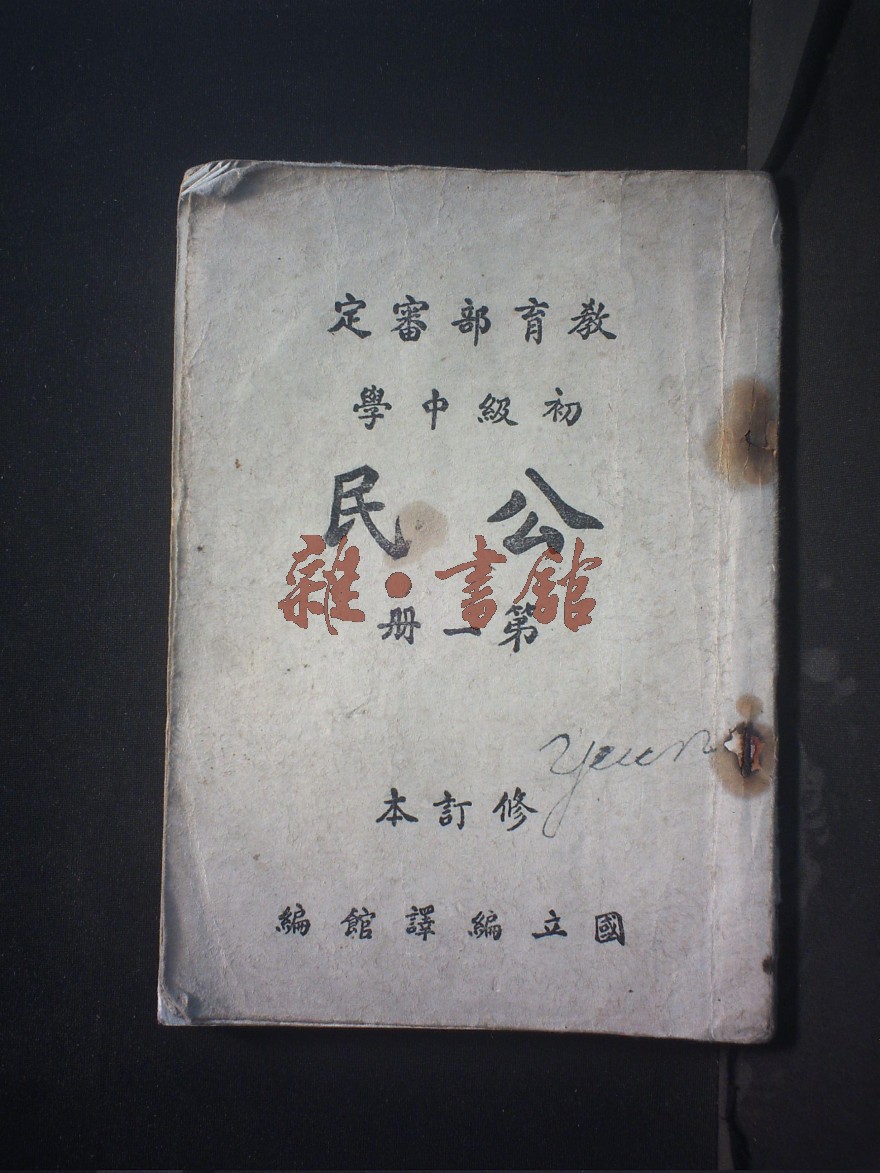 教育部審定
初級中學
公民
雜·書館
第一册
yuen
修訂本
國立編譯館編